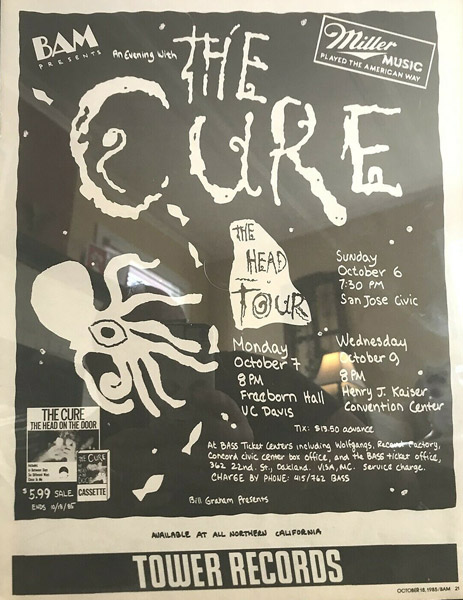 BAM
PRESENTS
An Evening With
THE
CURE
Miller
MUSIC
PLAYED THE AMERICAN WAY
THE
HEAD
TOUR
Sunday
October 6
7:30 PM
San Jose Civic
Monday
October 7
8 PM
Freeborn Hall
UC Davis
Wednesday
October 9
8 PM
Henry J. Kaiser
Convention Center
Tix: $13.50 advance
At BASS Ticket Centers including Wolfgangs, Record Factory,
Concord civic center box office, and the BASS ticket office,
362 22nd. St., Oakland. VISA, MC. Service charge.
CHARGE BY PHONE: 415/762 BASS
Bill Graham Presents
THE CURE
THE HEAD ON THE DOOR
THE CURE
$5.99 SALE
CASSETTE
ENDS 10/18/85
AVAILABLE AT ALL NORTHERN CALIFORNIA
TOWER RECORDS
OCTOBER 18, 1985/BAM 21